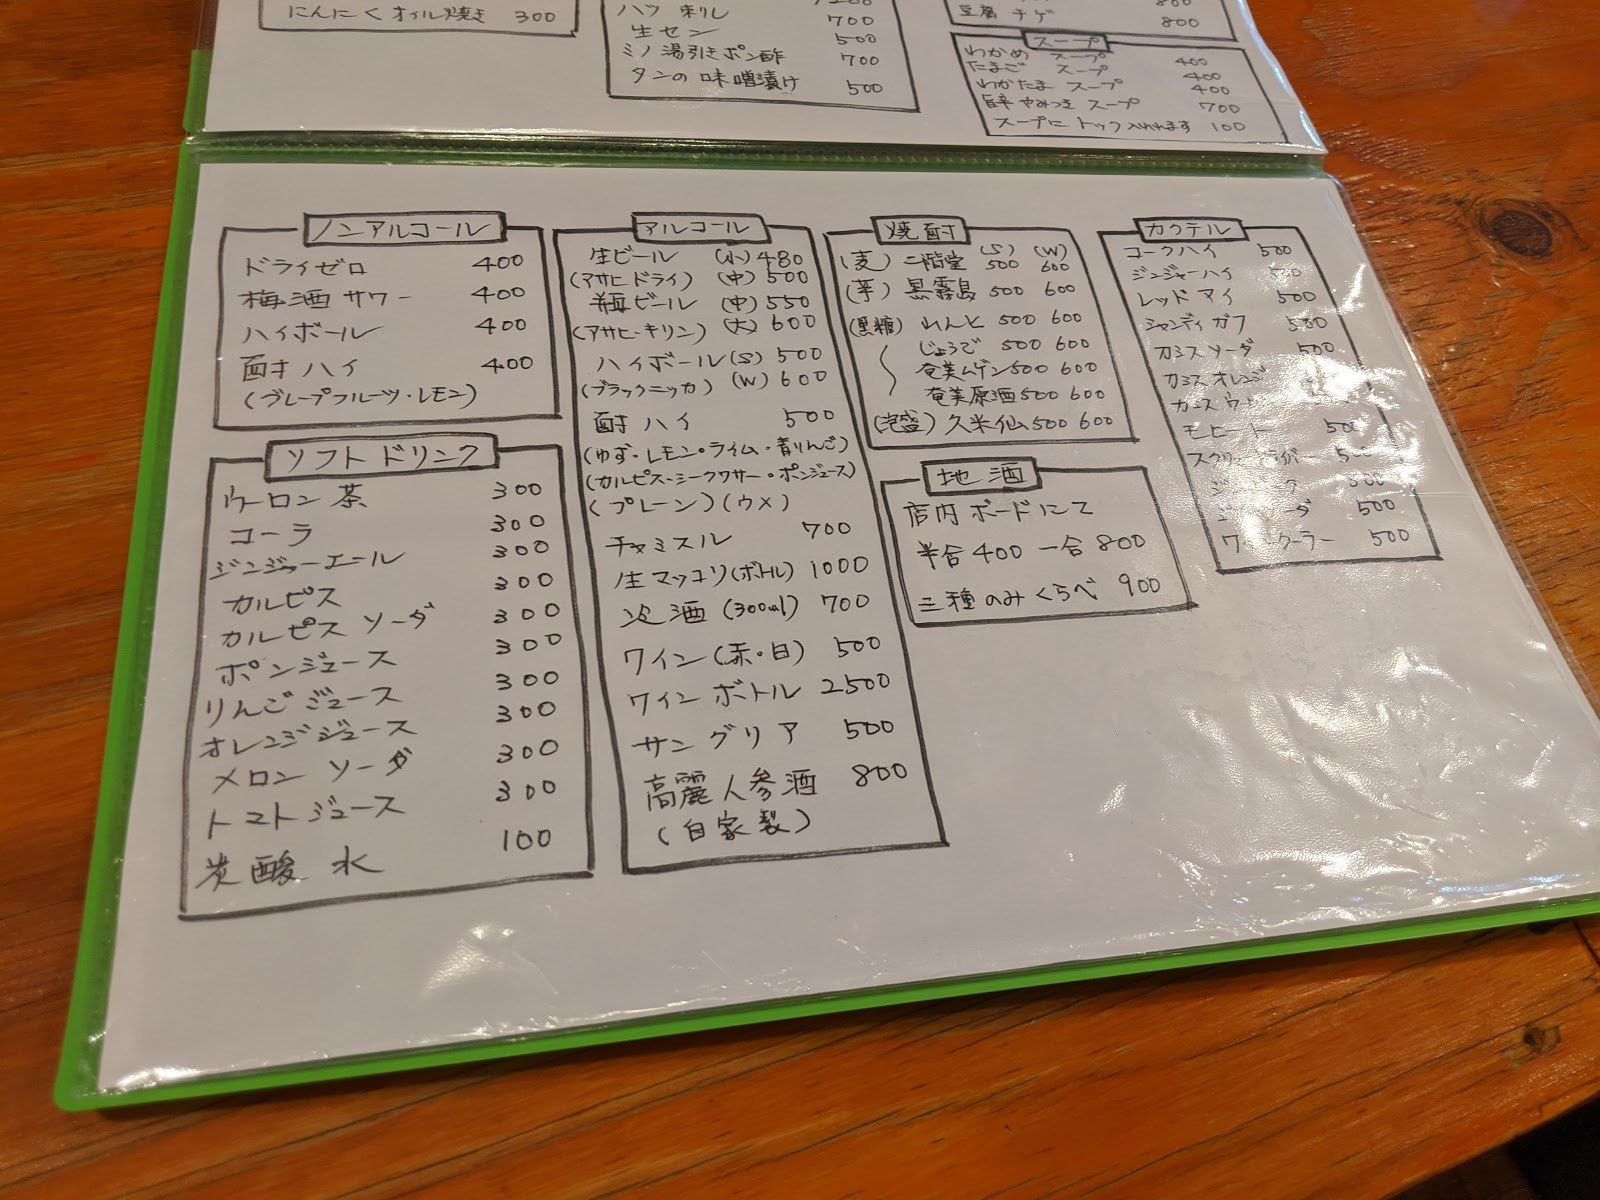 にんにくオイル焼き 300
ハツ刺し 700
生セン 500
ミノ湯引きポン酢 700
タンの味噌漬け 500
豆腐チゲ 800
スープ
わかめスープ 400
たまごスープ 400
わかたまスープ 400
旨辛やみつきスープ 700
スープにトック入れれます 100
ノンアルコール
ドライゼロ 400
梅酒サワー 400
ハイボール 400
酎ハイ 400
(グレープフルーツ・レモン)
ソフトドリンク
ウーロン茶 300
コーラ 300
ジンジャーエール 300
カルピス 300
カルピスソーダ 300
ポンジュース 300
りんごジュース 300
オレンジジュース 300
メロンソーダ 300
トマトジュース 300
炭酸水 100
アルコール
生ビール (小) 480
(アサヒドライ) (中) 500
瓶ビール (中) 550
(アサヒ・キリン) (大) 600
ハイボール (S) 500
(ブラックニッカ) (W) 600
酎ハイ 500
(ゆず・レモン・ライム・青りんご)
(カルピス・シークワサー・ポンジュース)
(プレーン)(ウメ)
チャミスル 700
生マッコリ(ボトル) 1000
冷酒 (300ml) 700
ワイン(赤・白) 500
ワインボトル 2500
サングリア 500
高麗人参酒 800
(自家製)
焼酎
(S) (W)
(麦) 二階堂 500 600
(芋) 黒霧島 500 600
(黒糖) れんと 500 600
じょうご 500 600
奄美ムゲン 500 600
奄美原酒 500 600
(泡盛) 久米仙 500 600
地酒
店内ボードにて
半合400 一合800
三種のみくらべ 900
カクテル
コークハイ 500
ジンジャーハイ
レッドアイ 500
シャンディガフ 500
カシスソーダ 500
カシスオレンジ
カシス
モヒート
スクリュードライバー
500
500